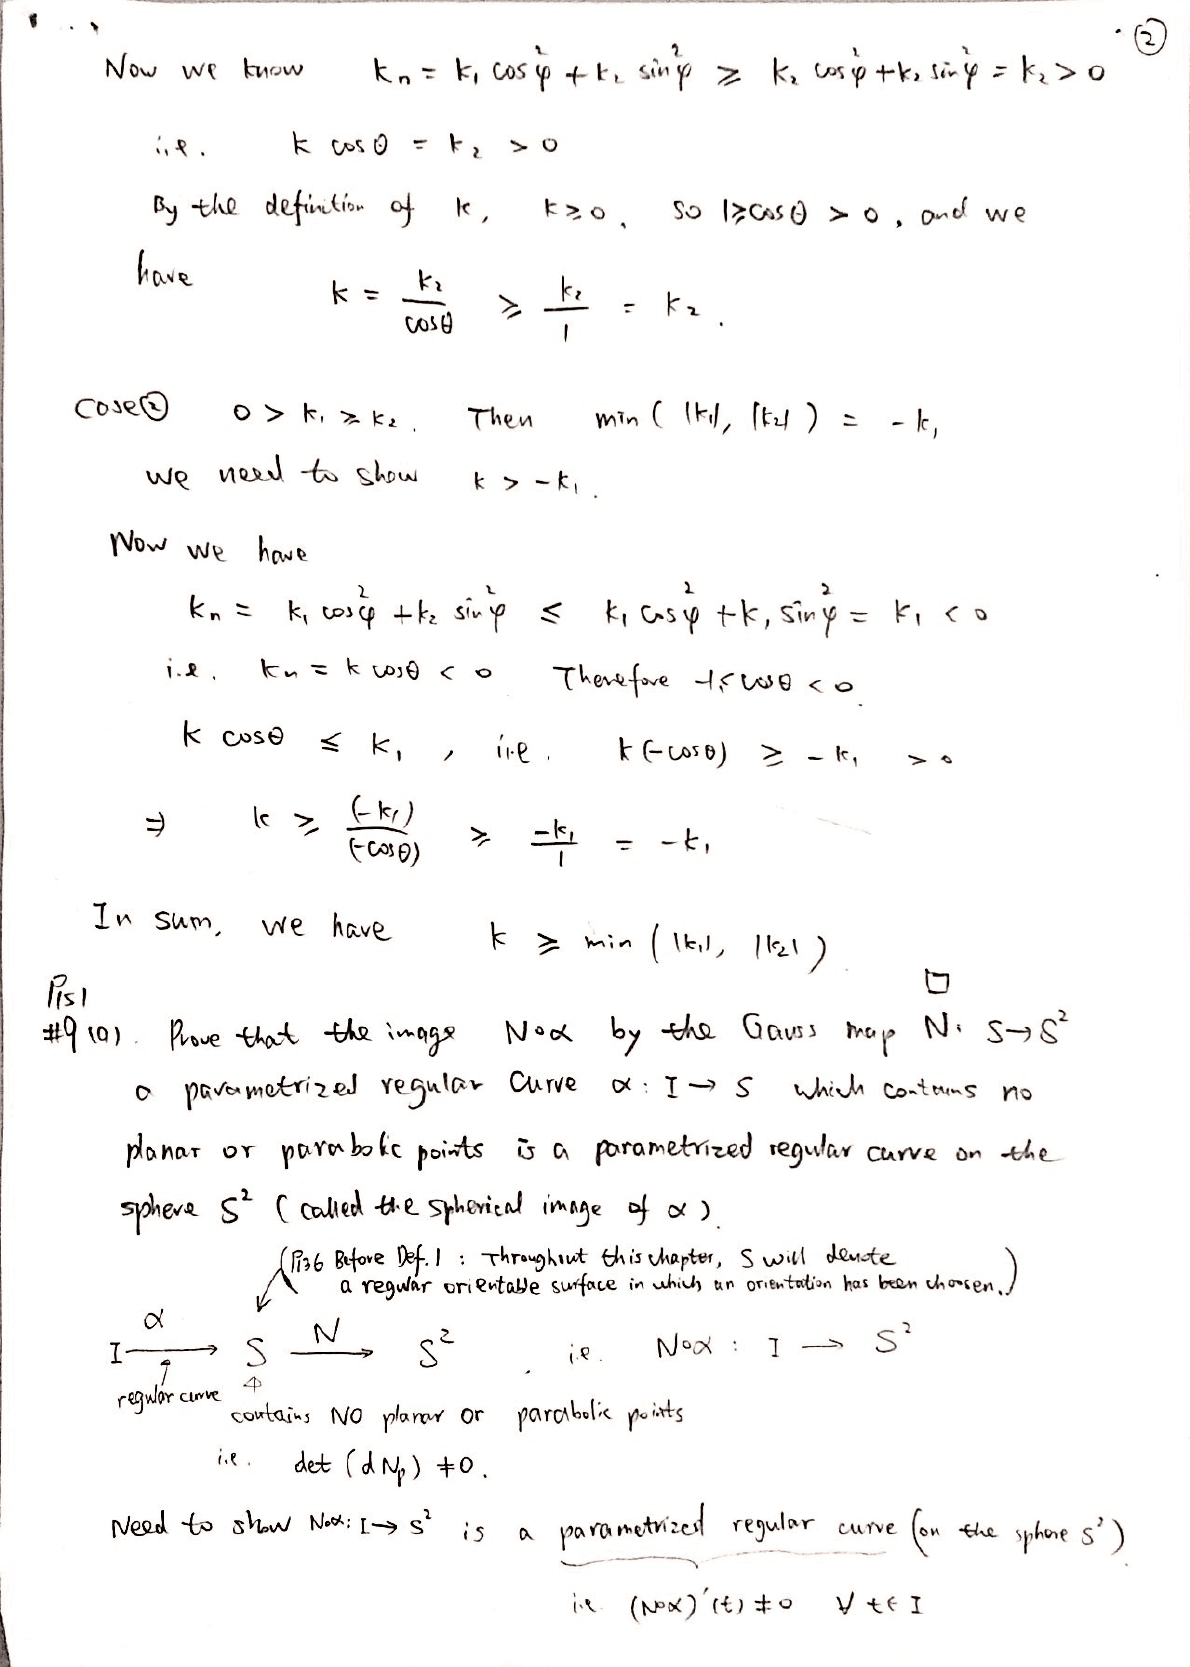 ②
Now we know k_n = k_1 cos²φ + k_2 sin²φ ≥ k_2 cos²φ + k_2 sin²φ = k_2 > 0
i.e. k cosθ = k_2 > 0
By the definition of k, k ≥ 0, so 1 ≥ cosθ > 0, and we
have k = k_2/cosθ ≥ k_2/1 = k_2.
Case② 0 > k_1 ≥ k_2. Then min(|k_1|, |k_2|) = -k_1
we need to show k > -k_1.
Now we have
k_n = k_1 cos²φ + k_2 sin²φ ≤ k_1 cos²φ + k_1 sin²φ = k_1 < 0
i.e. k_n = k cosθ < 0 Therefore -1 ≤ cosθ < 0.
k cosθ ≤ k_1, i.e. k(-cosθ) ≥ -k_1 > 0
⇒ k ≥ (-k_1)/(-cosθ) ≥ -k_1/1 = -k_1
In sum, we have k ≥ min(|k_1|, |k_2|).
□
P151
#9 (a). Prove that the image N∘α by the Gauss map N: S→S²
a parametrized regular curve α: I → S which contains no
planar or parabolic points is a parametrized regular curve on the
sphere S² (called the spherical image of α).
(P136 Before Def. 1 : Throughout this chapter, S will denote
a regular orientable surface in which an orientation has been choosen.)
I —α→ S —N→ S², i.e. N∘α : I → S²
regular curve
contains NO planar or parabolic points
i.e. det(dN_p) ≠ 0.
Need to show N∘α: I → S² is a parametrized regular curve (on the sphere S²)
i.e. (N∘α)'(t) ≠ 0 ∀ t ∈ I